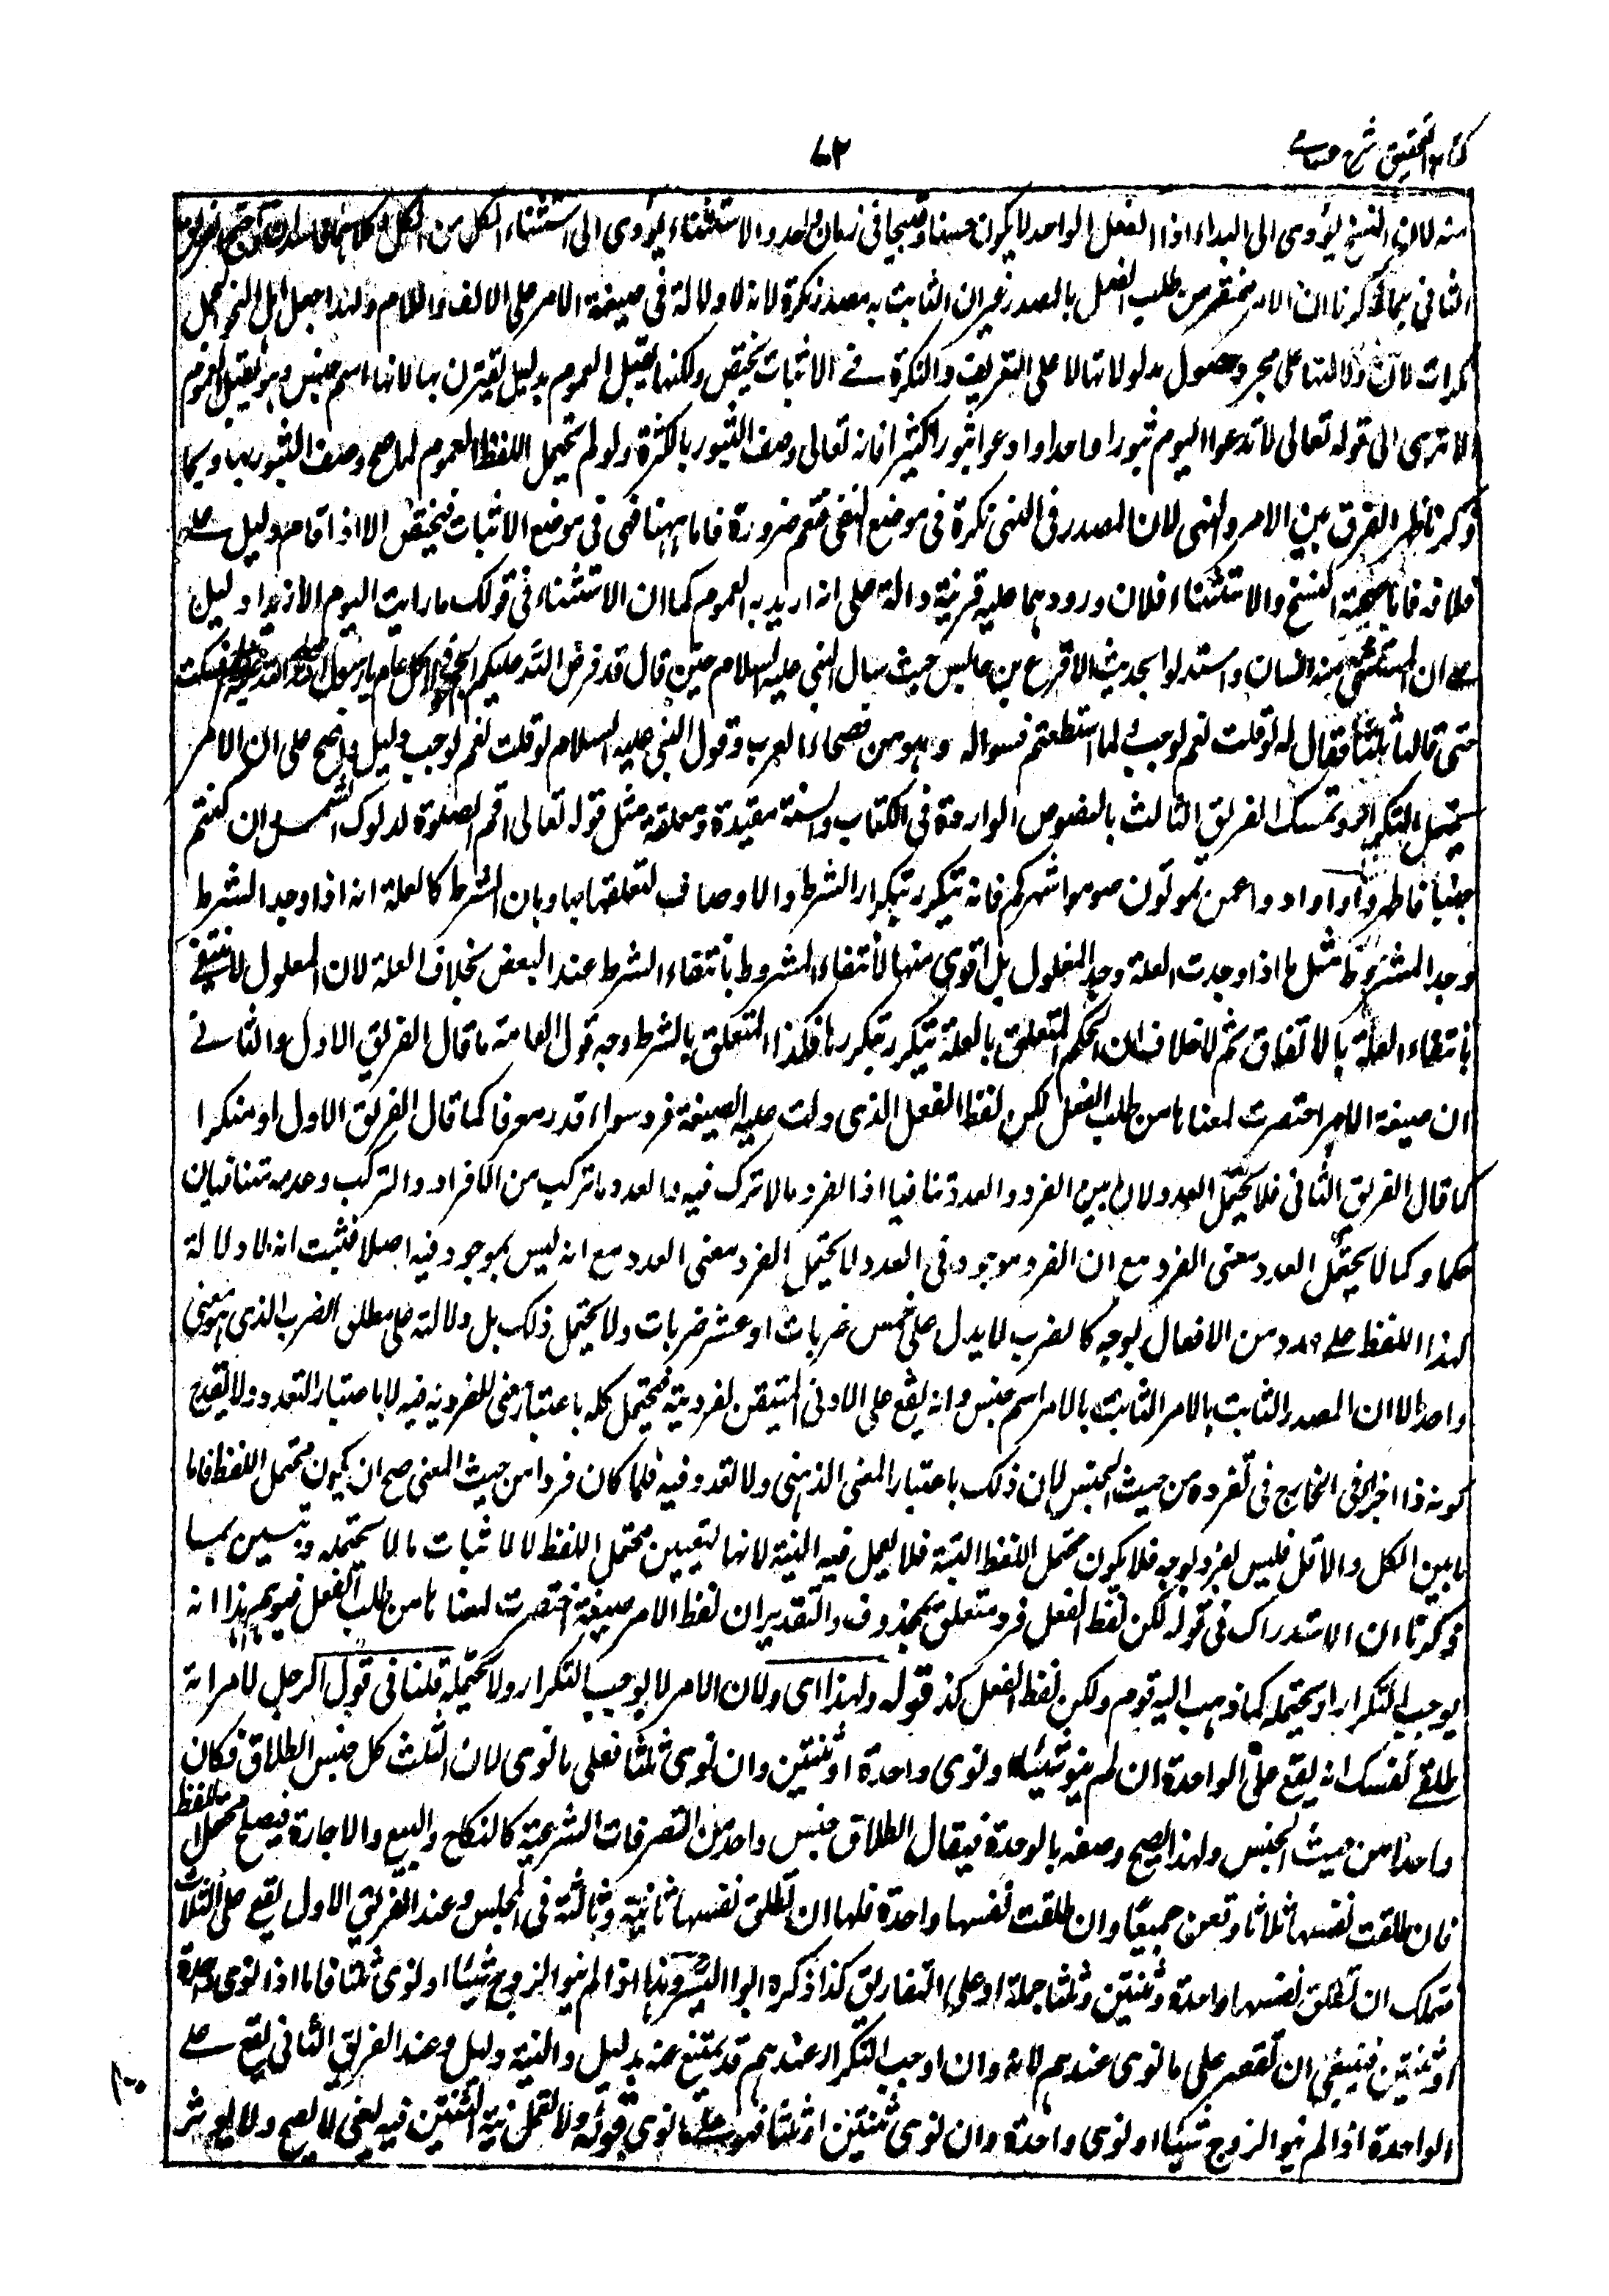 كتاب التحقيق شرح حسامى
٧٢
منه لان النسخ يؤدى الى البداء اذا الفعل الواحد لا يكون حسنا وقبيحا فى زمان واحد والاستثناء يؤدى الى استثناء الكل من الكل
الثانى بما ذكرنا ان الامر مختصر من طلب الفعل بالمصدر غير ان الثابت به مصدر نكرة لانه لا دلالة فى صيغة الامر على الالف واللام ولهذا جعل اهل النحو الجمل
نكرات لان دلالتها على مجرد حصول مدلولاتها لا على التعريف والنكرة فى الاثبات تختص ولكنها تقبل العموم بدليل يقترن بها لانها اسم جنس وهو يقبل العموم
الا ترى الى قوله تعالى لا تدعوا اليوم ثبورا واحدا وادعوا ثبورا كثيرا فانه تعالى وصف الثبور بالكثرة ولو لم يحتمل اللفظ العموم لما صح وصف الثبور بها وبما
ذكرنا ظهر الفرق بين الامر والنهى لان المصدر فى النهى نكرة فى موضع النفى فتعم ضرورة فاما ههنا فهى فى موضع الاثبات فيختص الا اذا قام دليل على
خلافه فاما صحة النسخ والاستثناء فلان ورودهما عليه قرينة دالة على انه اريد به العموم كما ان الاستثناء فى قولك ما رايت اليوم الا زيدا دليل
على ان المستثنى منه انسان واستدلوا بحديث الاقرع بن حابس حيث سال النبى عليه السلام حين قال قد فرض الله عليكم الحج فحجوا اكل عام يا رسول الله فسكت
حتى قالها ثلثا فقال له لو قلت نعم لوجب ولما استطعتم فسواله وهو من فصحاء العرب وقول النبى عليه السلام لو قلت نعم لوجب دليل واضح على ان الامر
يحتمل التكرار وتمسك الفريق الثالث بالنصوص الواردة فى الكتاب والسنة مقيدة ومعلقة مثل قوله تعالى اقم الصلوة لدلوك الشمس ان كنتم
جنبا فاطهروا وادوا عمن تمونون صوموا شهركم فانه يتكرر بتكرار الشرط والاوصاف لتعلقها بها وبان الشرط كالعلة انه اذا وجد الشرط
وجد المشروط مثل ما اذا وجدت العلة وجد المعلول بل اقوى منها لانتفاء المشروط بانتفاء الشرط عند البعض بخلاف العلة لان المعلول لا ينتفى
بانتفاء العلة بالاتفاق ثم لا خلاف ان الحكم المتعلق بالعلة يتكرر بتكررها فكذا المتعلق بالشرط وجه قول العامة ما قال الفريق الاول والثانى
ان صيغة الامر اختصرت لمعناها من طلب الفعل لكن لفظ الفعل الذى دلت عليه الصيغة فرد سواء قدر معرفا كما قال الفريق الاول او منكرا
كما قال الفريق الثانى فلا يحتمل العدد ولان بين الفرد والعدد تنافيا اذ الفرد ما لا تركب فيه والعدد ما تركب من الافراد والتركب وعدمه متنافيان
حكما وكما لا يحتمل العدد معنى الفرد مع ان الفرد موجود فى العدد لا يحتمل الفرد معنى العدد مع انه ليس بموجود فيه اصلا فثبت انه لا دلالة
لهذا اللفظ على عدد من الافعال بوجه كالضرب لا يدل على خمس ضربات او عشر ضربات ولا يحتمل ذلك بل دلالته على مطلق الضرب الذى هو معنى
واحد الا ان المصدر الثابت بالامر الثابت بالامر اسم جنس وانه يقع على الادنى المتيقن لفرديته فيحتمل كله باعتبار معنى للفردية فيه لا باعتبار التعدد ولا يقدح
كونه ذا اجزاء فى الخارج فى تفرده من حيث الجنس لان ذلك باعتبار المعنى الذهنى ولا تعدد فيه فلما كان فردا من حيث المعنى صح ان يكون محتمل اللفظ فاما
ما بين الكل والاقل فليس بفرد بوجه فلا يكون محتمل اللفظ البتة فلا يعمل فيه النية لانها لتعيين محتمل اللفظ لا لاثبات ما لا يحتمله وتبين بما
ذكرنا ان الاستدراك فى قوله لكن لفظ الفعل فرد متعلق بمحذوف والتقدير ان لفظ الامر صيغة اختصرت لمعناها من طلب الفعل فيوهم هذا انه
يوجب التكرار او يحتمله كما ذهب اليه قوم ولكن لفظ الفعل كذ قوله ولهذا اى ولان الامر لا يوجب التكرار ولا يحتمله قلنا فى قول الرجل لامراته
طلقى نفسك انه يقع على الواحدة ان لم ينو شيئا او نوى واحدة او ثنتين وان نوى ثلثا فعلى ما نوى لان الثلث كل جنس الطلاق فكان
واحدا من حيث الجنس ولهذا يصح وصفه بالوحدة فيقال الطلاق جنس واحد من التصرفات الشرعية كالنكاح والبيع والاجارة فيصلح محتملا للفظ
فان طلقت نفسها ثلاثا وقعن جميعا وان طلقت نفسها واحدة فلها ان تطلق نفسها ثانية وثالثة فى المجلس وعند الفريق الاول يقع على الثلاث
فتملك ان تطلق نفسها واحدة وثنتين وثلثا جملة او على التفاريق كذا ذكره ابو اليسر وهذا اذا لم ينو الزوج شيئا او نوى ثلثا فاما اذا نوى واحدة
او ثنتين فينبغى ان تقتصر على ما نوى عندهم لانه وان اوجب التكرار عندهم قد يمتنع عنه بدليل والنية دليل وعند الفريق الثانى يقع على
الواحدة اذا لم ينو الزوج شيئا او نوى واحدة وان نوى ثنتين او ثلثا فهو على ما نوى قوله ولا تعمل نية الثنتين فيه يعنى لا يصح ولا يوثر